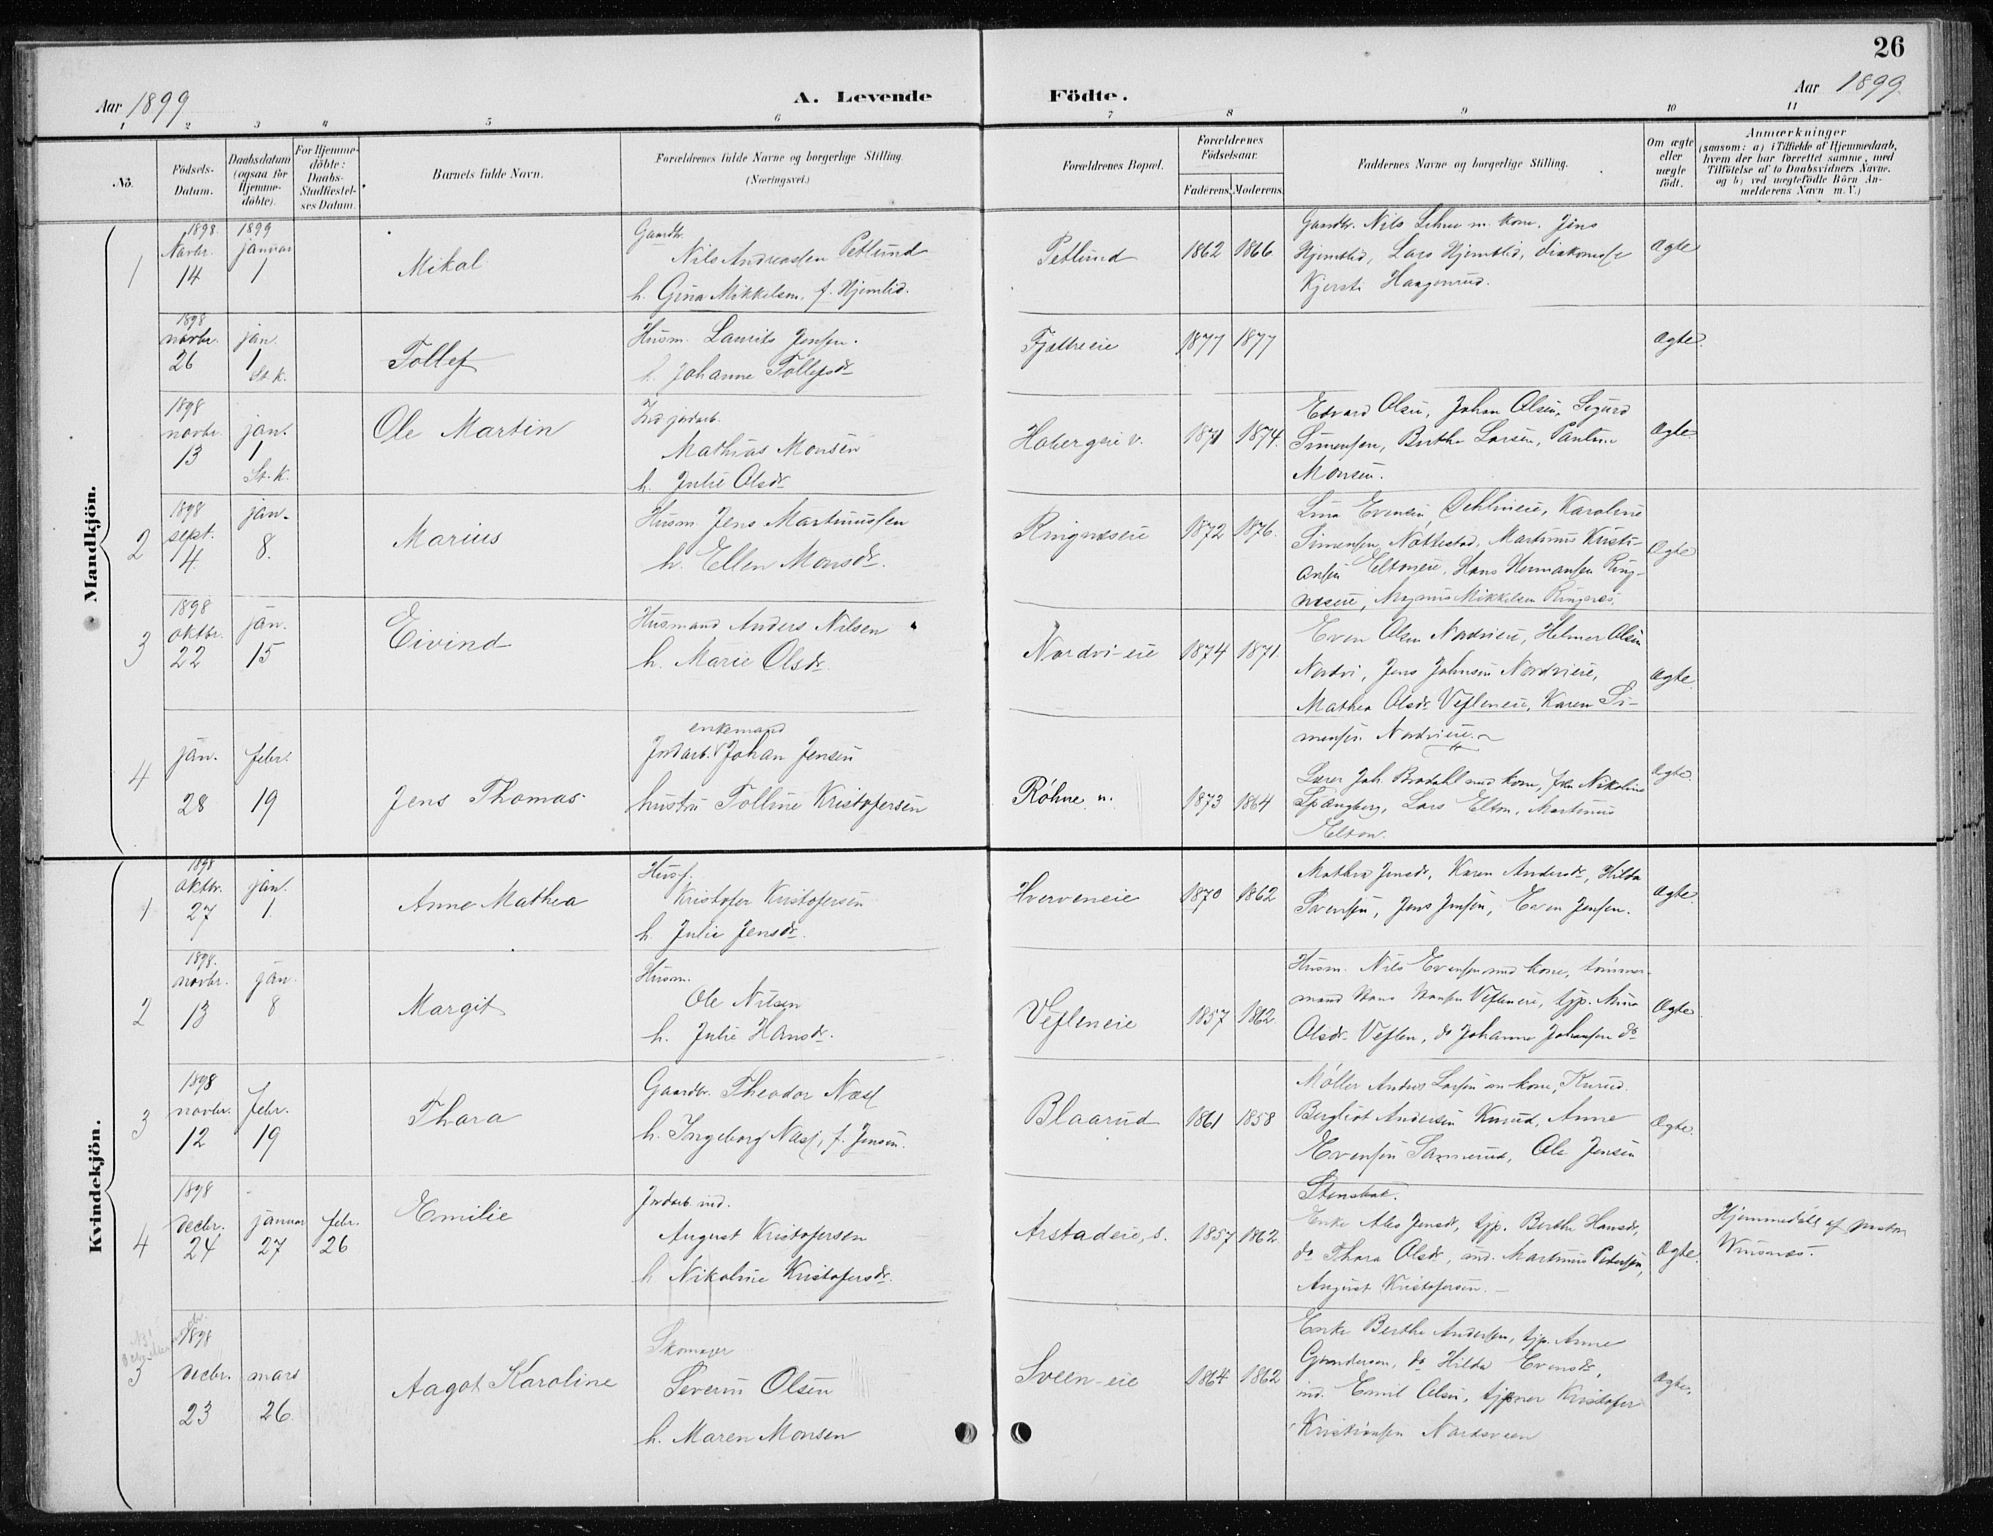 26
Aar 1899
A. Levende
Födte.
Aar 1899.
1 2 3 4 5 6 7 8 9 10 11
No.
Födsels-
Datum.
Daabsdatum
(ogsaa for
Hjemme-
döbte).
For Hjemme-
döbte:
Daabs-
Stadfæstel-
ses Datum.
Barnets fulde Navn.
Forældrenes fulde Navne og borgerlige Stilling
(Næringsvei.)
Forældrenes Bopæl.
Forældrenes
Födselsaar.
Faderens. Moderens.
Faddernes Navne og borgerlige Stilling.
Om ægte
eller
uægte
födt.
Anmærkninger
(saasom: a) i Tilfælde af Hjemmedaab,
hvem der har forrettet samme, med
Tilföielse af to Daabsvidners Navne.
og b) ved uægtefödte Börn An-
melderens Navn m. V.)
Mandkjön.
1
1898
Novbr.
14
1899
januar
1
Mikal
Gaardbr.
Nils Andreassen Petlund
h. Gina Mikkelsen, f. Hjemlid.
Petlund
1862 1866
Gaardbr. Nils Lehne m. kone, Jens
Hjemlid, Lars Hjemlid, diakonisse
Kjersti Haagenrud.
Ægte
1898
novbr.
26
jan.
1
St. K.
Tollef
Husm. Laurits Jensen.
h. Johanne Tollefsdr
Fjeltreeie
1877 1877
Ægte
1898
novbr.
13
jan.
1
St. K.
Ole Martin
Ind. jordarb.
Mathias Monsen
h. Julie Olsdr
Habergeie v.
1871 1874.
Edvard Olsen, Johan Olsen, Sigurd
Simensen, Berthe Larsen, Pauline
Monsen.
Ægte
2
1898
sept.
14
jan.
8.
Marius
Husm. Jens Martinussen
h. Ellen Monsdr.
Ringnæseie
1872 1876.
Lina Evensen Dehlineie, Karoline
Simensen, Nøttestad, Martinus Kristi-
ansen Eltoneie, Hans Hermansen Ring-
næseie, Magnus Mikkelsen Ringnæs.
Ægte
3
1898
oktbr.
22
jan.
15
Eivind
Husmand Anders Nilsen
h. Marie Olsdr.
Nordvi-eie
1874 1871.
Even Olsen Nordvieie, Helmer Olsen
Nordvi, Jens Johnsen Nordvieie,
Mathea Olsdr Vefleneie, Karen Si-
mensen Nordvieie.
Ægte
4
jan.
28
febr.
19
Jens Thomas
enkemand
Jordarb. Johan Jensen
hustru Tolline Kristofersen
Røhne, n.
1873 1864
Lærer Joh. Brodahl med kone, frk. Nikoline
Spangberg, Lars Elton, Martinus
Elton.
Ægte.
Kvindekjön.
1
1898
oktbr.
27
jan.
1
Anne Mathea
Husf.
Kristofer Kristofersen
h. Julie Jensdr.
Hverveneie
1870 1862
Mathea Jensdr, Karen Andersdr, Hilda
Svensen, Jens Jensen, Even Jensen.
Ægte.
2
1898.
novbr.
13
jan.
8
Margit
Husm.
Ole Nilsen
h. Julie Hansdr.
Vefleneie
1857 1862
Husm. Nils Evensen med kone, tømmer-
mand Hans Hansen Vefleneie, tjp. Anna
Olsdr Veflen, do Johanne Johansen do
Ægte
3
1898
novbr.
12
febr.
19
Thora
Gaardbr. Theodor Næss
h. Ingeborg Næss, f. Jensen.
Blaarud
1861 1858
Møller Anders Larsen m kone, Knrud.
Bergliot Andersen Knrud, Anne
Evensen Sannerud, Ole Jensen
Stenshat.
Ægte.
4
1898
decbr.
24
januar
27
febr.
26
Emilie
Jordarb ind.
August Kristofersen
h Nikoline Kristofersdr.
Arstadeie, s.
1857 1862
Enke Ales Jensdr, tjp. Berthe Hansdr,
do Thora Olsdr, ind. Martinus Pedersen,
August Kristofersen.
Ægte.
Hjemmedøbt af pastor
Wiisnæs.
3
1898
decbr.
23
mars
26.
Aagot Karoline
Skomager
Severin Olsen
h. Maren Monsen
Sveen-eie
1864 1862
Enke Berthe Andersen, tjp. Anne
Gundersen, do Hilda Evensdr,
ind. Emil Olsen, tjener Kristofer
Kristiansen Nordsveen
Ægte.